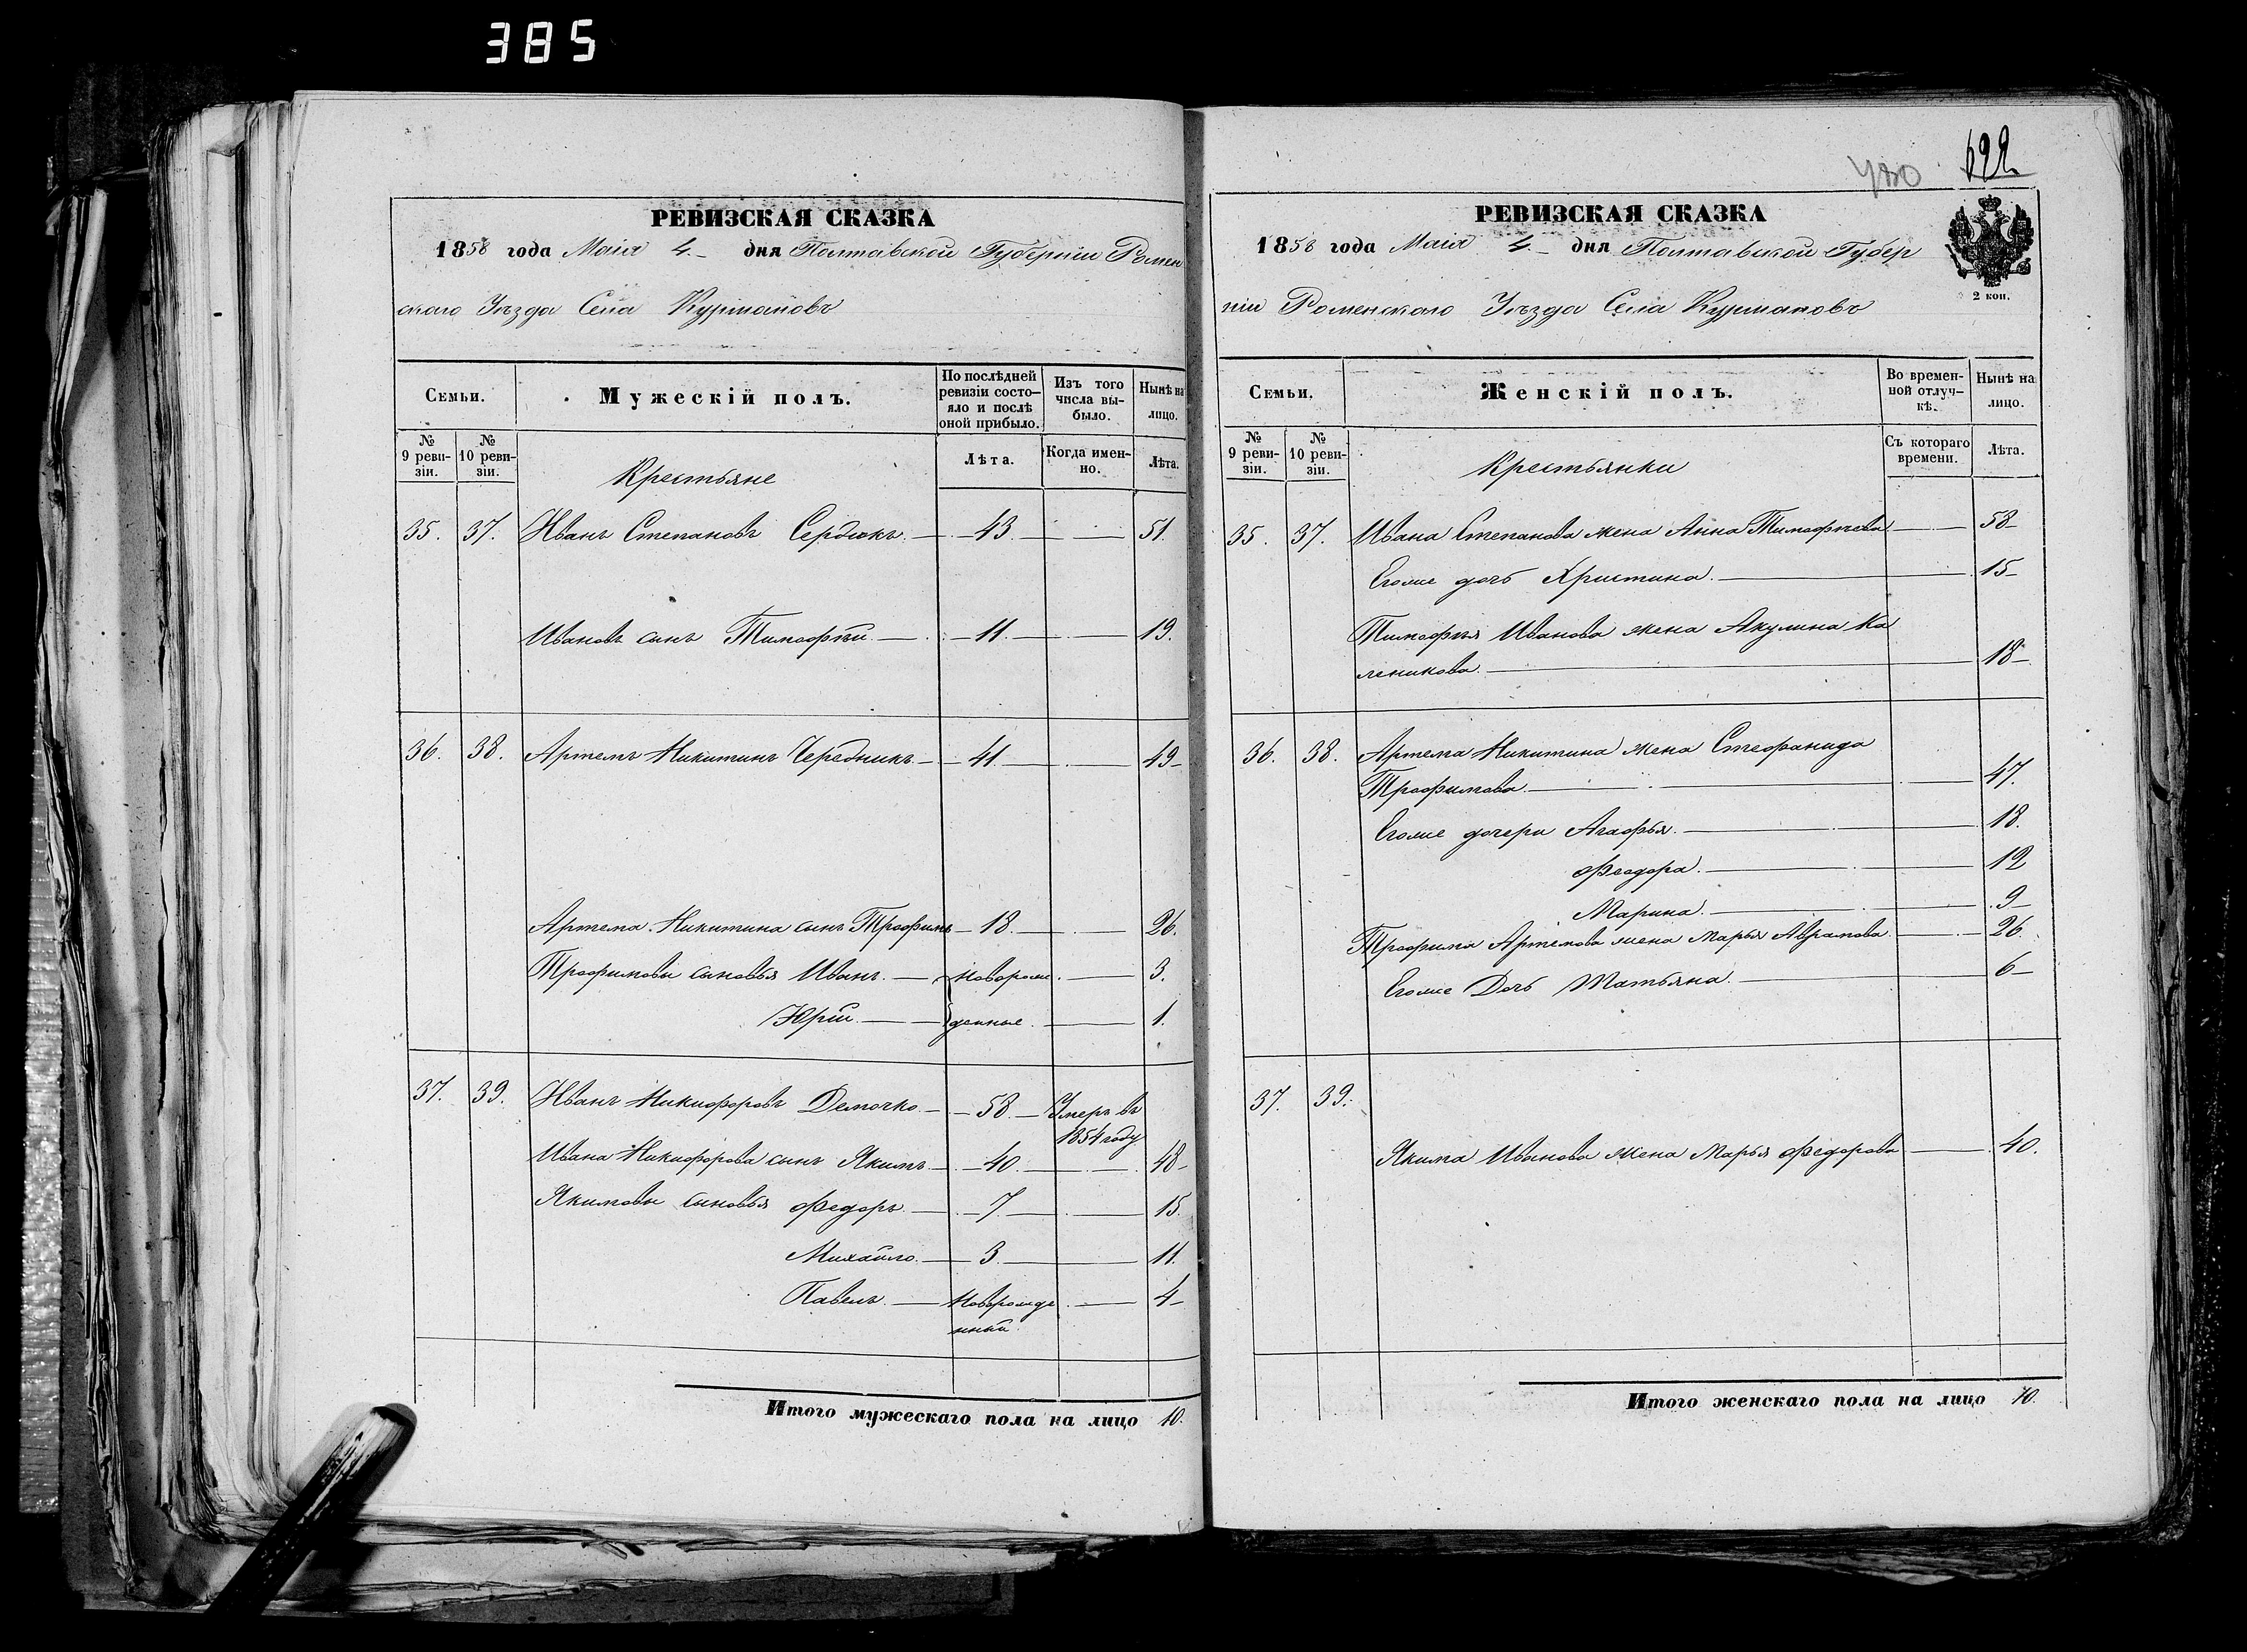 385
РЕВИЗСКАЯ СКАЗКА
1858 года Маія 4. дня Полтавской Губерніи Ромен
скаго Уѣзда Села Курмановъ
Семьи.
Мужескій полъ.
По послѣдней ревизіи состояло и послѣ оной прибыло.
Изъ того числа выбыло.
Нынѣ на лицо.
№ 9 ревизіи.
№ 10 ревизіи.
Крестьяне
Лѣта.
Когда именно.
Лѣта.
35. 37. Иванъ Степановъ Сердюкъ. 43. 51.
Ивановъ сынъ Тимофѣй 11. 19.
36. 38. Артемъ Никитинъ Чередникъ 41. 49
Артема Никитина сынъ Трофимъ 18. 26.
Трофимовы сыновья Иванъ. новорож 3.
Юрій денные. 1.
37. 39. Иванъ Никифоровъ Демочко. 58. Умеръ въ
1854 году
Ивана Никифорова сынъ Якимъ 40. 48
Якимовы сыновья Федоръ 7. 15.
Михайло. 3. 11.
Павелъ. Новорожде 4
нный.
Итого мужескаго пола на лицо 10.
622
РЕВИЗСКАЯ СКАЗКА
1858 года Маія 4. дня Полтавской Губер
ніи Роменскаго Уѣзда Села Курмановъ
2 коп.
Семьи.
Женскій полъ.
Во временной отлучкѣ.
Нынѣ на лицо.
№ 9 ревизіи.
№ 10 ревизіи.
Крестьянки
Съ котораго времени.
Лѣта.
35. 37. Ивана Степанова жена Анна Тимофѣева 58
Егоже дочь Христина. 15
Тимофѣя Иванова жена Акулина Ка
леникова. 18
36. 38. Артема Никитина жена Стефанида
Трофимова. 47.
Егоже дочери Агафья. 18.
Феодора. 12
Марина. 9
Трофима Артемова жена Марья Аврамова. 26.
Егоже Дочь Татьяна. 6
37. 39.
Якима Иванова жена Марья Федорова 40.
Итого женскаго пола на лицо 10.